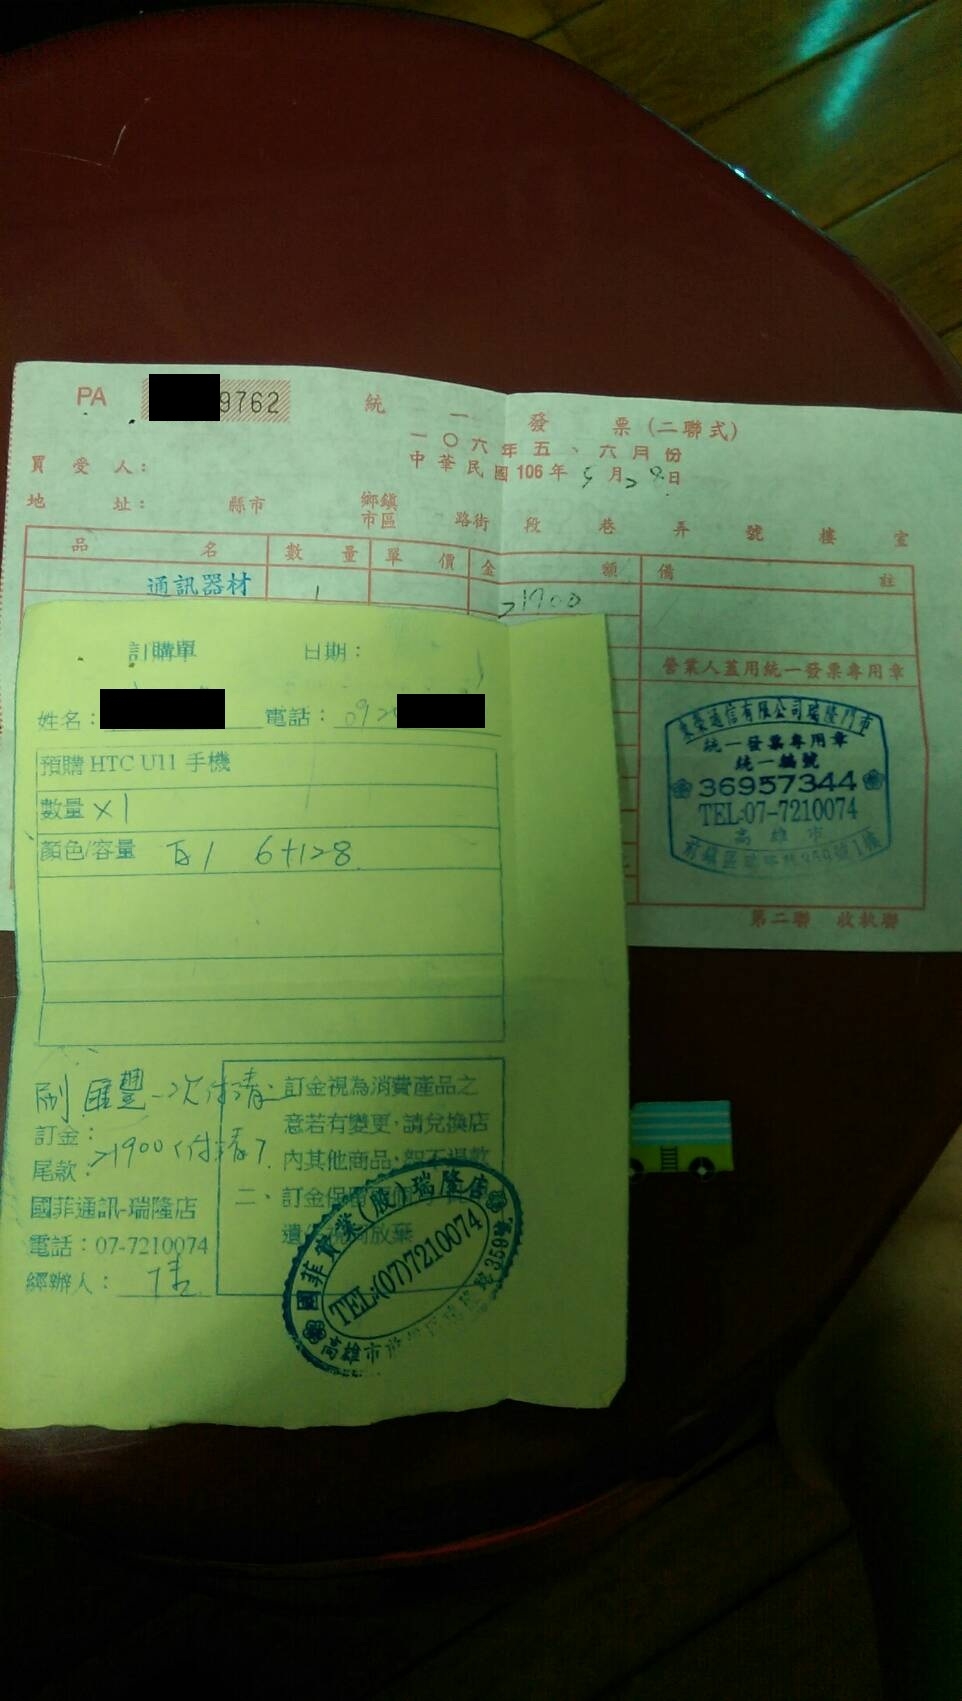 PA 9762 統一發票(二聯式)
一〇六年五、六月份
中華民國106年5月29日
買受人:
地址: 縣市 鄉鎮市區 路街 段 巷 弄 號 樓 室
品名 數量 單價 金額 備註
通訊器材 1 21900
營業人蓋用統一發票專用章
通信有限公司瑞隆門市
統一發票專用章
統一編號
36957344
TEL:07-7210074
高雄市
第二聯 收執聯
訂購單 日期:
姓名: 電話: 092
預購 HTC U11 手機
數量 x1
顏色/容量 6+128
刷匯豐一次付清
訂金:
尾款: 21900(付清)
國菲通訊-瑞隆店
電話:07-7210074
經辦人:
訂金視為消費產品之
意若有變更,請兌換店
內其他商品,恕不退款
二、訂金保留
視同放棄
國菲實業(股)瑞隆店
TEL:(07)7210074
高雄市 359號